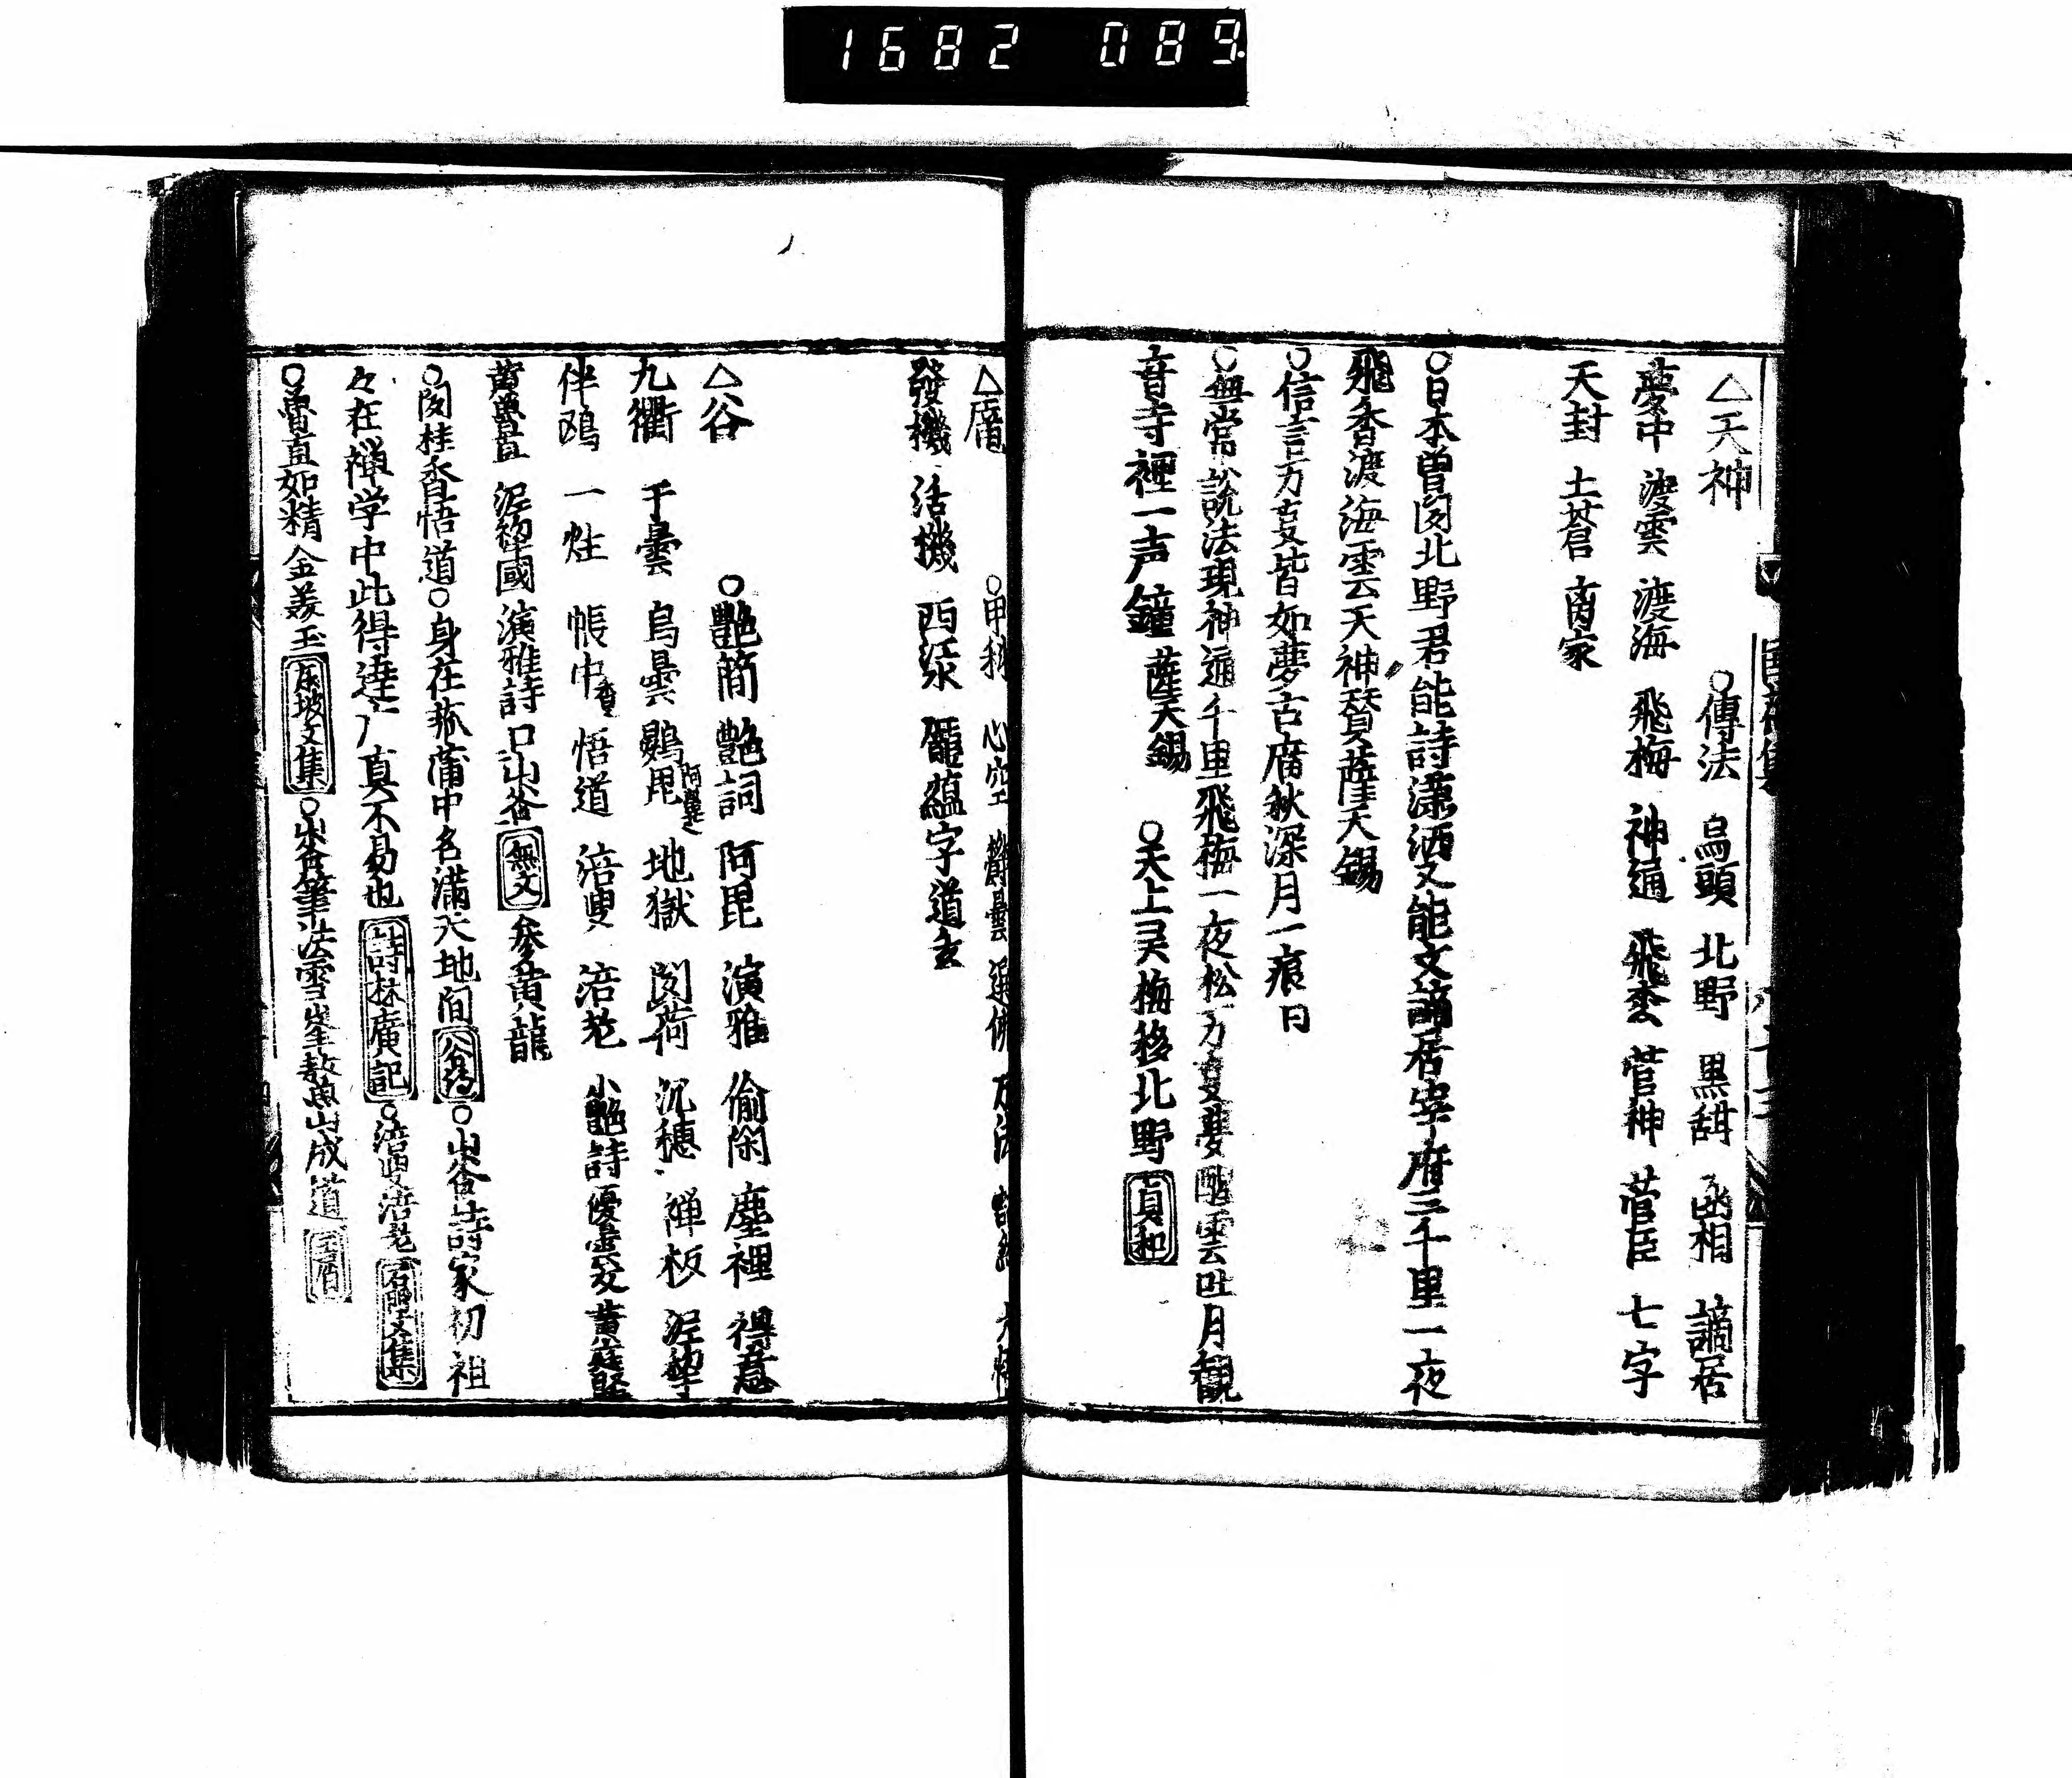 1682 089.
△天神
○傳法 烏頭 北野 黒甜 函相 謫居
夢中 渡雲 渡海 飛梅 神通 飛香 菅神 菅臣 七字
天封 土蒼 两家
○日本曽聞北野君能詩瀟洒又能文謫居宰府三千里一夜
飛香渡海雲天神賛薩天錫
○信言万事皆如夢古廟秋深月一痕日
○無常説法現神通千里飛梅一夜松万事夢醒雲吐月観
音寺裡一声鐘薩天錫 ○天上灵梅移北野 貞和
△龐
○甲科 心空
發機 活機 西江水 龐蘊字道玄
△谷
○艶簡 艶詞 阿毘 演雅 偷閑 塵裡 得意
九衢 千曇 烏曇 鷃毘 地獄 聞荷 沉穗 禅板 泥犂
伴鴎 一炷 帳中香 悟道 涪叟 涪老 小艶詩 優曇 黄庭堅
黄魯直 泥犂國 演雅詩 口山谷 無文 参黄龍
○聞桂香悟道○身在菰蒲中名滿天地間 谷 ○山谷詩家初祖
々在禅学中此得達广真不易也 詩林廣記 ○涪叟涪老 石門文集
○魯直如精金美玉 東坡文集 ○山谷筆法雪峯鰲山成道